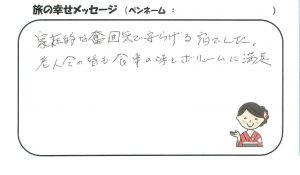 旅の幸せメッセージ（ペンネーム：　　　　　　）
家庭的な雰囲気で安らげる宿でした。
老人会の皆も食事の味とボリュームに満足